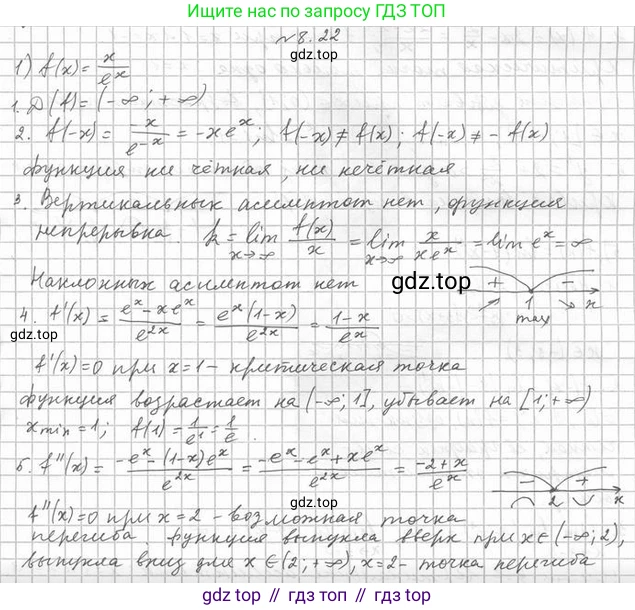 Ищите нас по запросу ГДЗ ТОП
№ 8.22
1) f(x) = x/e^x
1. D(f) = (-∞; +∞)
2. f(-x) = -x/e^{-x} = -xe^x; f(-x) ≠ f(x); f(-x) ≠ -f(x)
функция ни чётная, ни нечётная
3. Вертикальных асимптот нет, функция
непрерывна. k = lim_{x→∞} f(x)/x = lim_{x→∞} x/(xe^x) = lim e^x = ∞
Наклонных асимптот нет
gdz.top
+ - 1 max x
4. f'(x) = (e^x - xe^x)/e^{2x} = e^x(1-x)/e^{2x} = (1-x)/e^x
f'(x) = 0 при x = 1 - критическая точка
функция возрастает на (-∞; 1], убывает на [1; +∞)
x min = 1; f(1) = 1/e^1 = 1/e.
5. f''(x) = (-e^x - (1-x)e^x)/e^{2x} = (-e^x - e^x + xe^x)/e^{2x} = (-2+x)/e^x
- + 2 x
gdz.top
f''(x) = 0 при x = 2 - возможная точка
перегиба функция выпукла вверх при x ∈ (-∞; 2),
выпукла вниз для x ∈ (2; +∞), x = 2 - точка перегиба
gdz.top // gdz.top // gdz.top